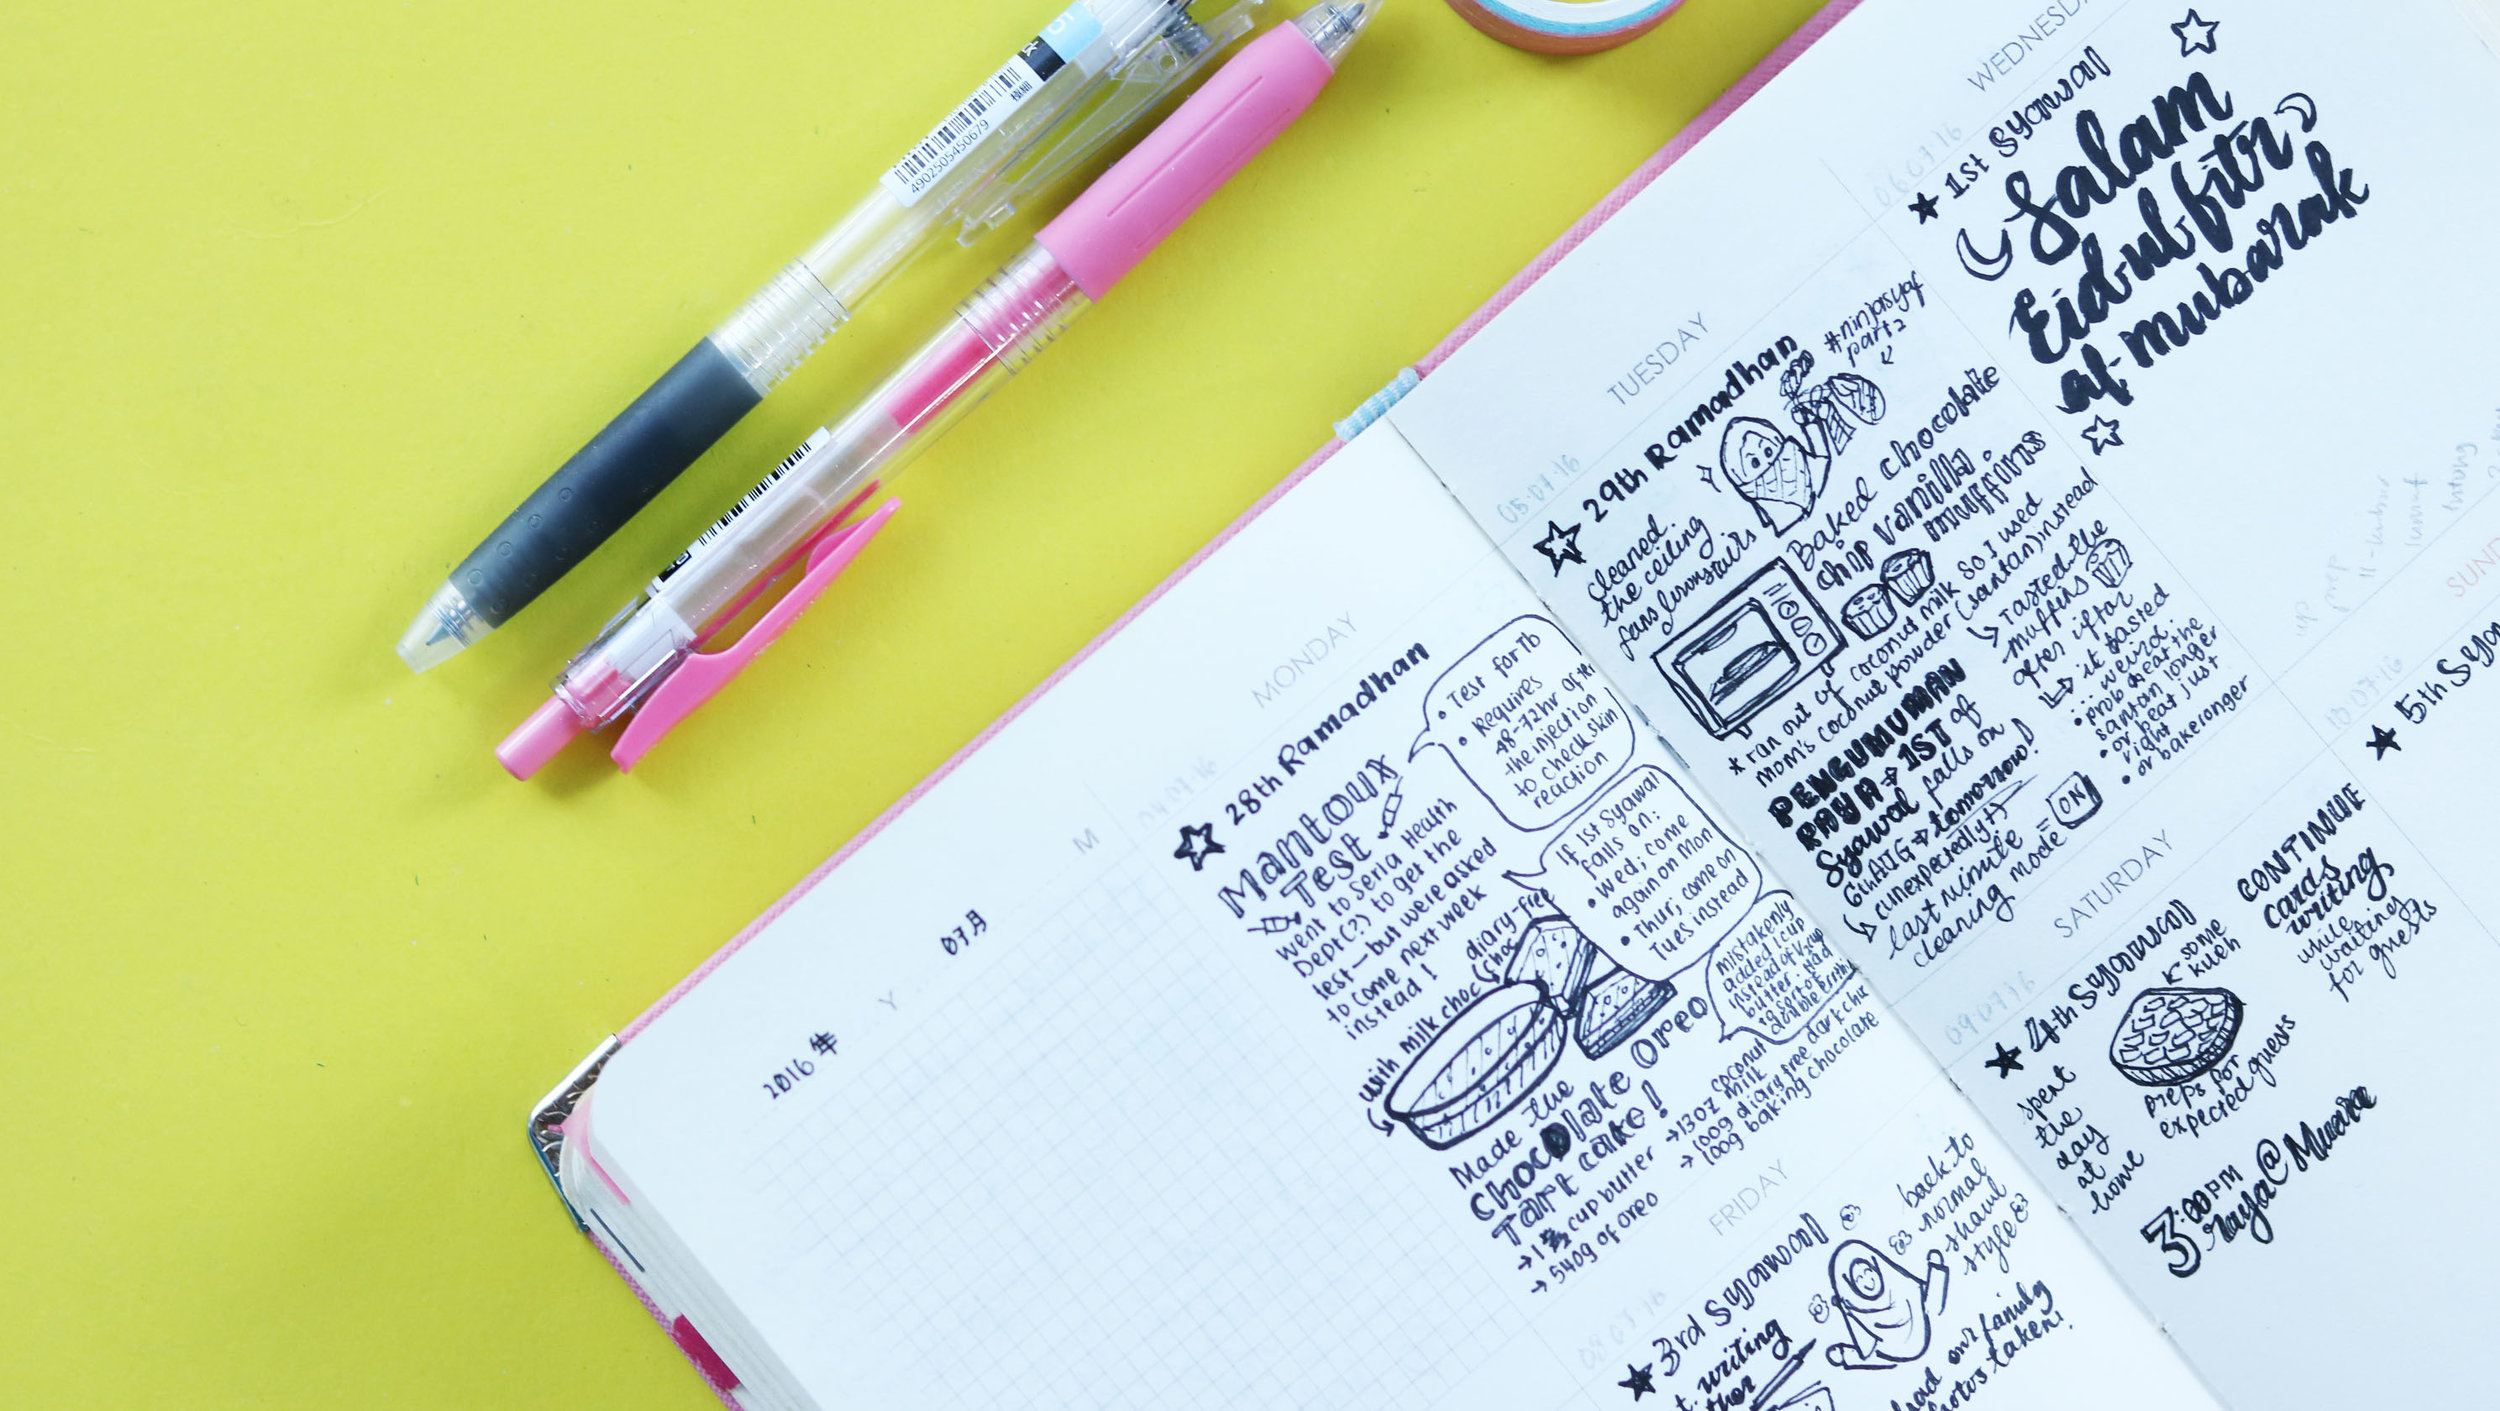 4902505450679
2016年
Y
07月
M
04.07.16
MONDAY
28th Ramadhan
Mantoux
Test
went to Seria Health
Dept(?) to get the
test—but were asked
to come next week
instead!
• Test for Tb
• Requires
48-72hr after
the injection
to check skin
reaction
If 1st Syawal
falls on:
• Wed; come
again on Mon
• Thur; come on
Tues instead
diary-free
choc
with milk choc
mistakenly
added 1 cup
instead of 1/2 cup
butter. Had
Made the
Chocolate Oreo
Tart cake!
→ 1
cup butter
→ 540g of oreo
→ 13oz coconut
milk
→ 100g diary free dark choc
→ 100g baking chocolate
05.07.16
TUESDAY
29th Ramadhan
#ninjasyaf
part 2
cleaned
the ceiling
fans downstairs
Baked chocolate
chip vanilla
muffins
* ran out of coconut milk so I used
mom's coconut powder (santan) instead
↳ Tasted the
muffins
after iftar
↳ it tasted
weird.
• prob heat the
santan longer
• or beat just
right
• or bake longer
PENGUMUMAN
RAYA → 1ST of
Syawal falls on
6th AUG → tomorrow!
(unexpectedly)
↳ last minute
cleaning mode = ON
06.07.16
WEDNESDA
1st Syawal
Salam
Eidul fitr
al-mubarak
08.07.16
FRIDAY
3rd Syawal
writing
back to
normal
shawl
style
had our family
photos taken!
09.07.16
SATURDAY
4th Syawal
spent
the
day
at
home
some
kueh
preps for
expected guests
CONTINUE
cards
writing
while
waiting
for guests
3:00PM
raya @
10.07.16
SUN
5th Syaw